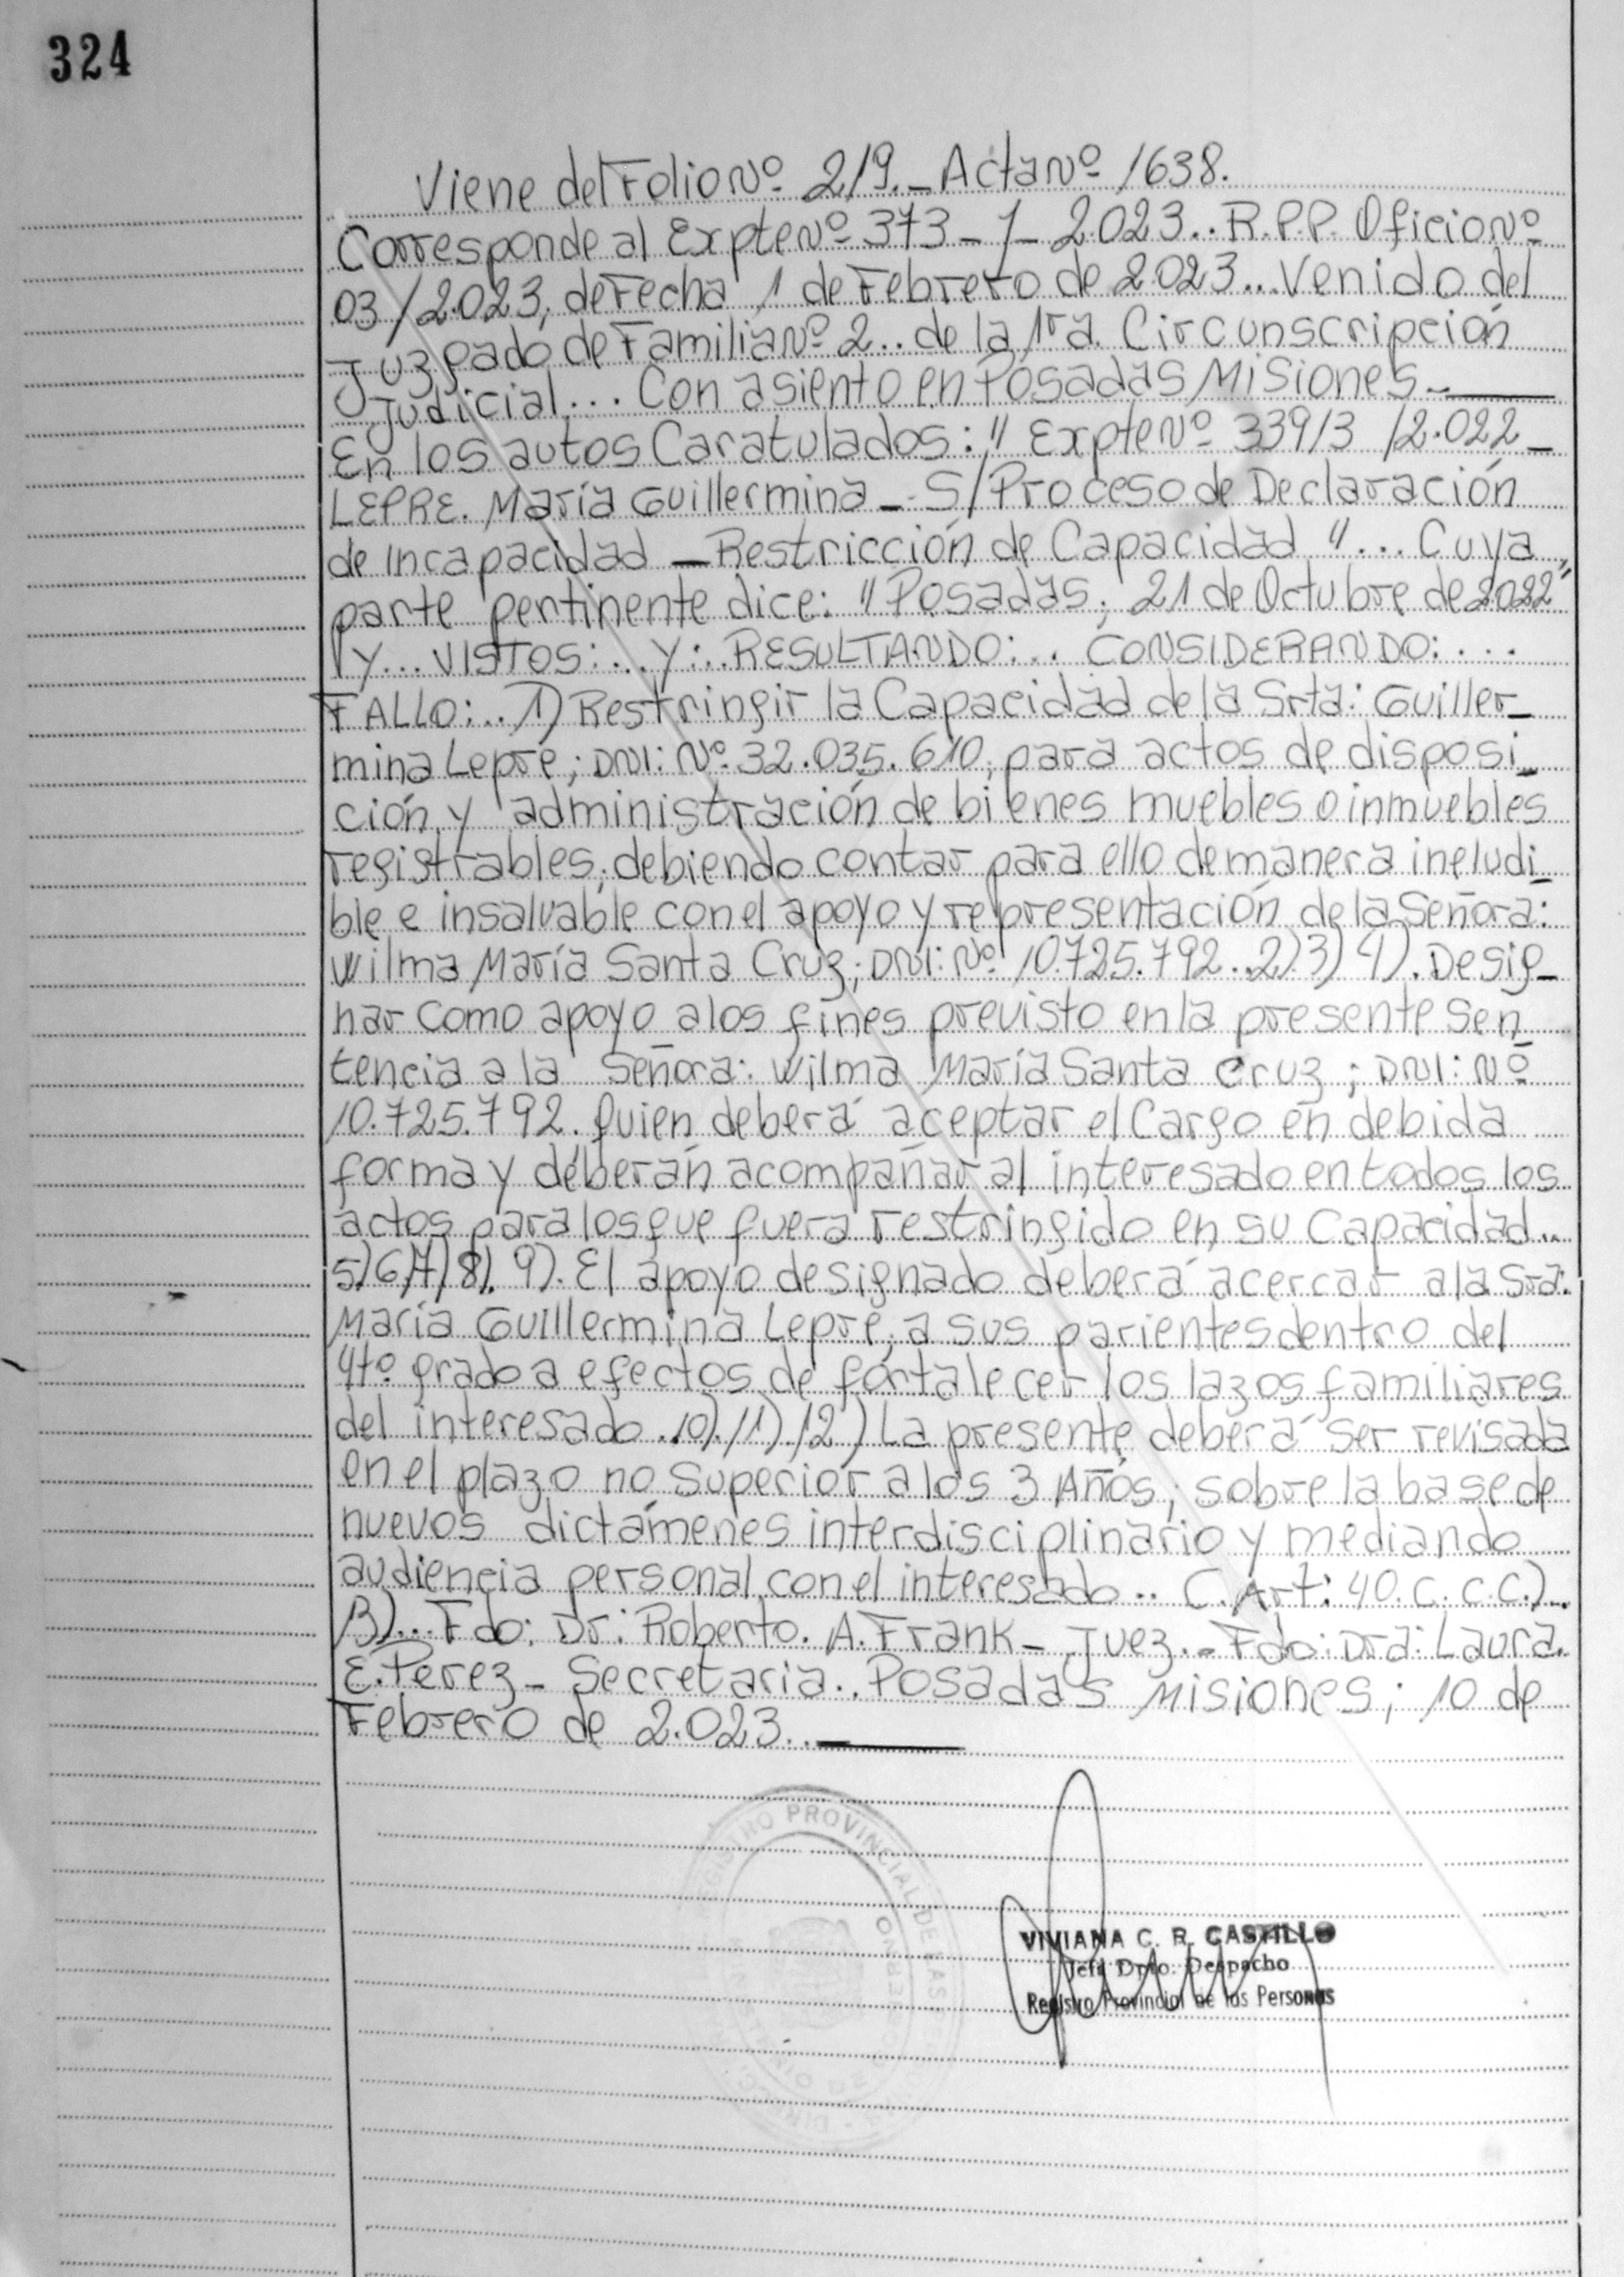 324
Viene del Folio Nº 219._ Acta Nº 1638.
Corresponde al Expte Nº 373_1_2.023.. R.P.P. Oficio Nº
03/2.023, de Fecha 1 de Febrero de 2.023... Venido del
Juzgado de Familia Nº 2.. de la 1ra. Circunscripción
Judicial... Con asiento en Posadas Misiones._
En los autos Caratulados: "Expte Nº 33913/2.022_
LEPRE. María Guillermina _ S/Proceso de Declaración
de Incapacidad _ Restricción de Capacidad"... Cuya
parte pertinente dice: "Posadas, 21 de Octubre de 2022"
Y... VISTOS:... Y:.. RESULTANDO:.. CONSIDERANDO:....
FALLO:.. 1) Restringir la Capacidad de la Srta: Guiller_
mina Lepre; DNI: Nº: 32.035.610, para actos de disposi_
ción y administración de bienes muebles o inmuebles
registrables, debiendo contar para ello de manera ineludi_
ble e insalvable con el apoyo y representación de la Señora:
Wilma María Santa Cruz; DNI: Nº 10.725.792..2).3) 4). Desig_
nar como apoyo a los fines previsto en la presente Sen
tencia a la Señora: Wilma María Santa Cruz; DNI: Nº
10.725.792. Quien deberá aceptar el Cargo en debida
forma y deberán acompañar al interesado en todos los
actos para los que fuera restringido en su Capacidad...
5)6)7)8). 9). El apoyo designado deberá acercar a la Sra:
María Guillermina Lepre, a sus parientes dentro del
4to grado a efectos de fortalecer los lazos familiares
del interesado..10).11).12) La presente deberá ser revisada
en el plazo no Superior a los 3 Años, sobre la base de
nuevos dictámenes interdisciplinario y mediando
audiencia personal con el interesado.. C.Art: 40. C. C.C.)..
13)... Fdo: Dr: Roberto. A. Frank_ Juez.- Fdo: Dra: Laura.
E. Perez_ Secretaria.. Posadas Misiones; 10 de
Febrero de 2.023..
REGISTRO PROVINCIAL DE LAS
VIVIANA C. R. CASTILLO
Jefa Dpto. Despacho
Registro Provincial de las Personas